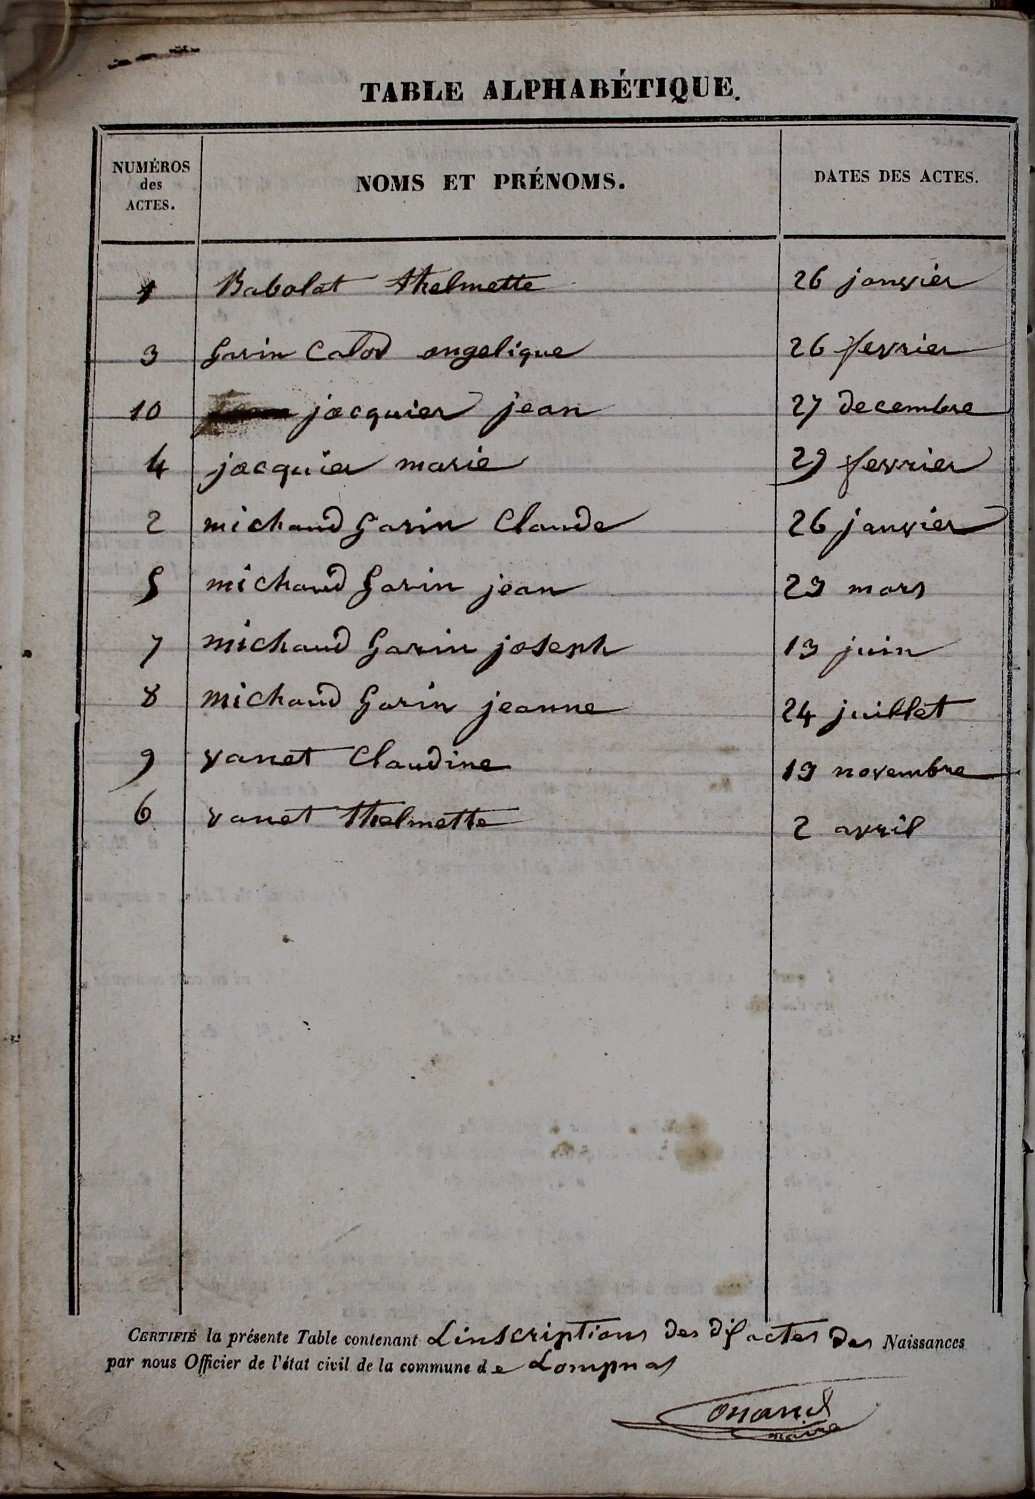 TABLE ALPHABÉTIQUE.
NUMÉROS des ACTES. NOMS ET PRÉNOMS. DATES DES ACTES.
1 Babolat thelmette 26 janvier
3 garin Calod angelique 26 fevrier
10 jacquier jean 27 decembre
4 jacquier marie 29 fevrier
2 michaud garin Claude 26 janvier
5 michaud garin jean 29 mars
7 michaud garin joseph 13 juin
8 michaud garin jeanne 24 juillet
9 vanet Claudine 19 novembre
6 vanet thelmette 2 avril
CERTIFIÉ la présente Table contenant Linscriptions des dis actes des Naissances
par nous Officier de l'état civil de la commune de Lompnas
maire